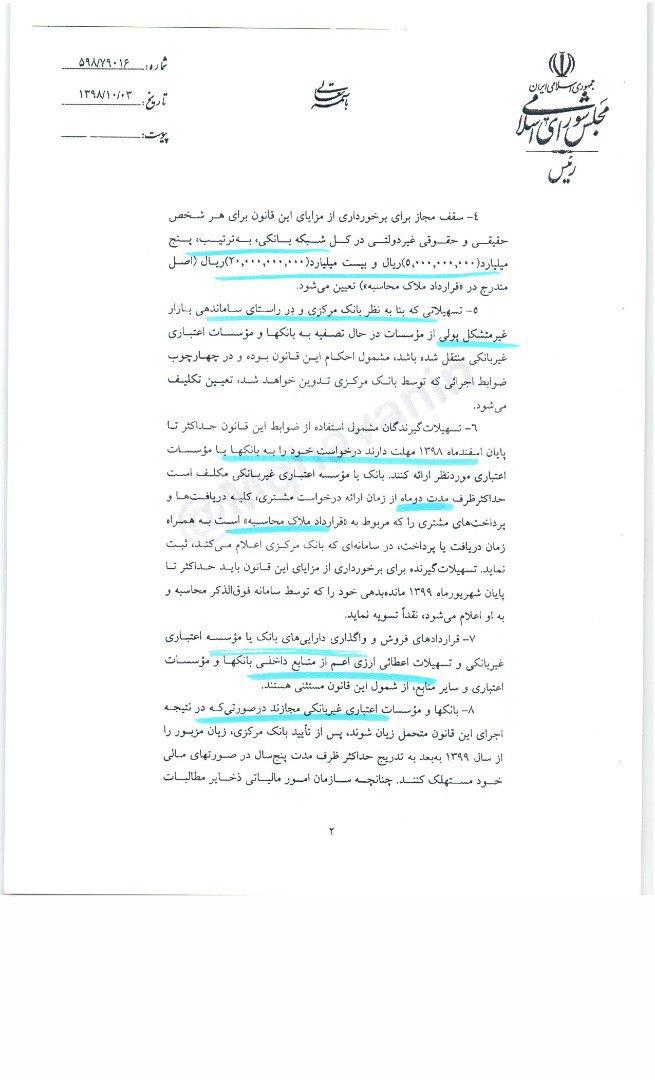 جمهوری اسلامی ایران
مجلس شورای اسلامی
رئیس
باسمه تعالی
شماره: ۵۹۸/۷۹۰۱۶
تاریخ: ۱۳۹۸/۱۰/۰۳
پیوست:
٤- سقف مجاز برای برخورداری از مزایای این قانون برای هر شخص
حقیقی و حقوقی غیردولتی در کل شبکه بانکی، به‌ترتیب، پنج
میلیارد(۵,۰۰۰,۰۰۰,۰۰۰)ریال و بیست میلیارد(۲۰,۰۰۰,۰۰۰,۰۰۰)ریال (اصل
مندرج در «قرارداد ملاک محاسبه») تعیین می‌شود.
۵- تسهیلاتی که بنا به نظر بانک مرکزی و در راستای ساماندهی بازار
غیرمتشکل پولی از مؤسسات در حال تصفیه به بانکها و مؤسسات اعتباری
غیربانکی منتقل شده باشد، مشمول احکام این قانون بوده و در چهارچوب
ضوابط اجرائی که توسط بانک مرکزی تدوین خواهد شد، تعیین تکلیف
می‌شود.
۶- تسهیلات‌گیرندگان مشمول استفاده از ضوابط این قانون حداکثر تا
پایان اسفندماه ۱۳۹۸ مهلت دارند درخواست خود را به بانکها یا مؤسسات
اعتباری موردنظر ارائه کنند. بانک یا مؤسسه اعتباری غیربانکی مکلف است
حداکثرظرف مدت دوماه از زمان ارائه درخواست مشتری، کلیه دریافت‌ها و
پرداخت‌های مشتری را که مربوط به «قرارداد ملاک محاسبه» است به همراه
زمان دریافت یا پرداخت، در سامانه‌ای که بانک مرکزی اعلام می‌کند، ثبت
نماید. تسهیلات‌گیرنده برای برخورداری از مزایای این قانون باید حداکثر تا
پایان شهریورماه ۱۳۹۹ مانده‌بدهی خود را که توسط سامانه فوق‌الذکر محاسبه و
به او اعلام می‌شود، نقداً تسویه نماید.
۷- قراردادهای فروش و واگذاری دارایی‌های بانک یا مؤسسه اعتباری
غیربانکی و تسهیلات اعطائی ارزی اعم از منابع داخلی بانکها و مؤسسات
اعتباری و سایر منابع، از شمول این قانون مستثنی هستند.
۸- بانکها و مؤسسات اعتباری غیربانکی مجازند درصورتی‌که در نتیجه
اجرای این قانون متحمل زیان شوند، پس از تأیید بانک مرکزی، زیان مزبور را
از سال ۱۳۹۹ به‌بعد به تدریج حداکثر ظرف مدت پنج‌سال در صورتهای مالی
خود مستهلک کنند. چنانچه سازمان امور مالیاتی ذخایر مطالبات
۲